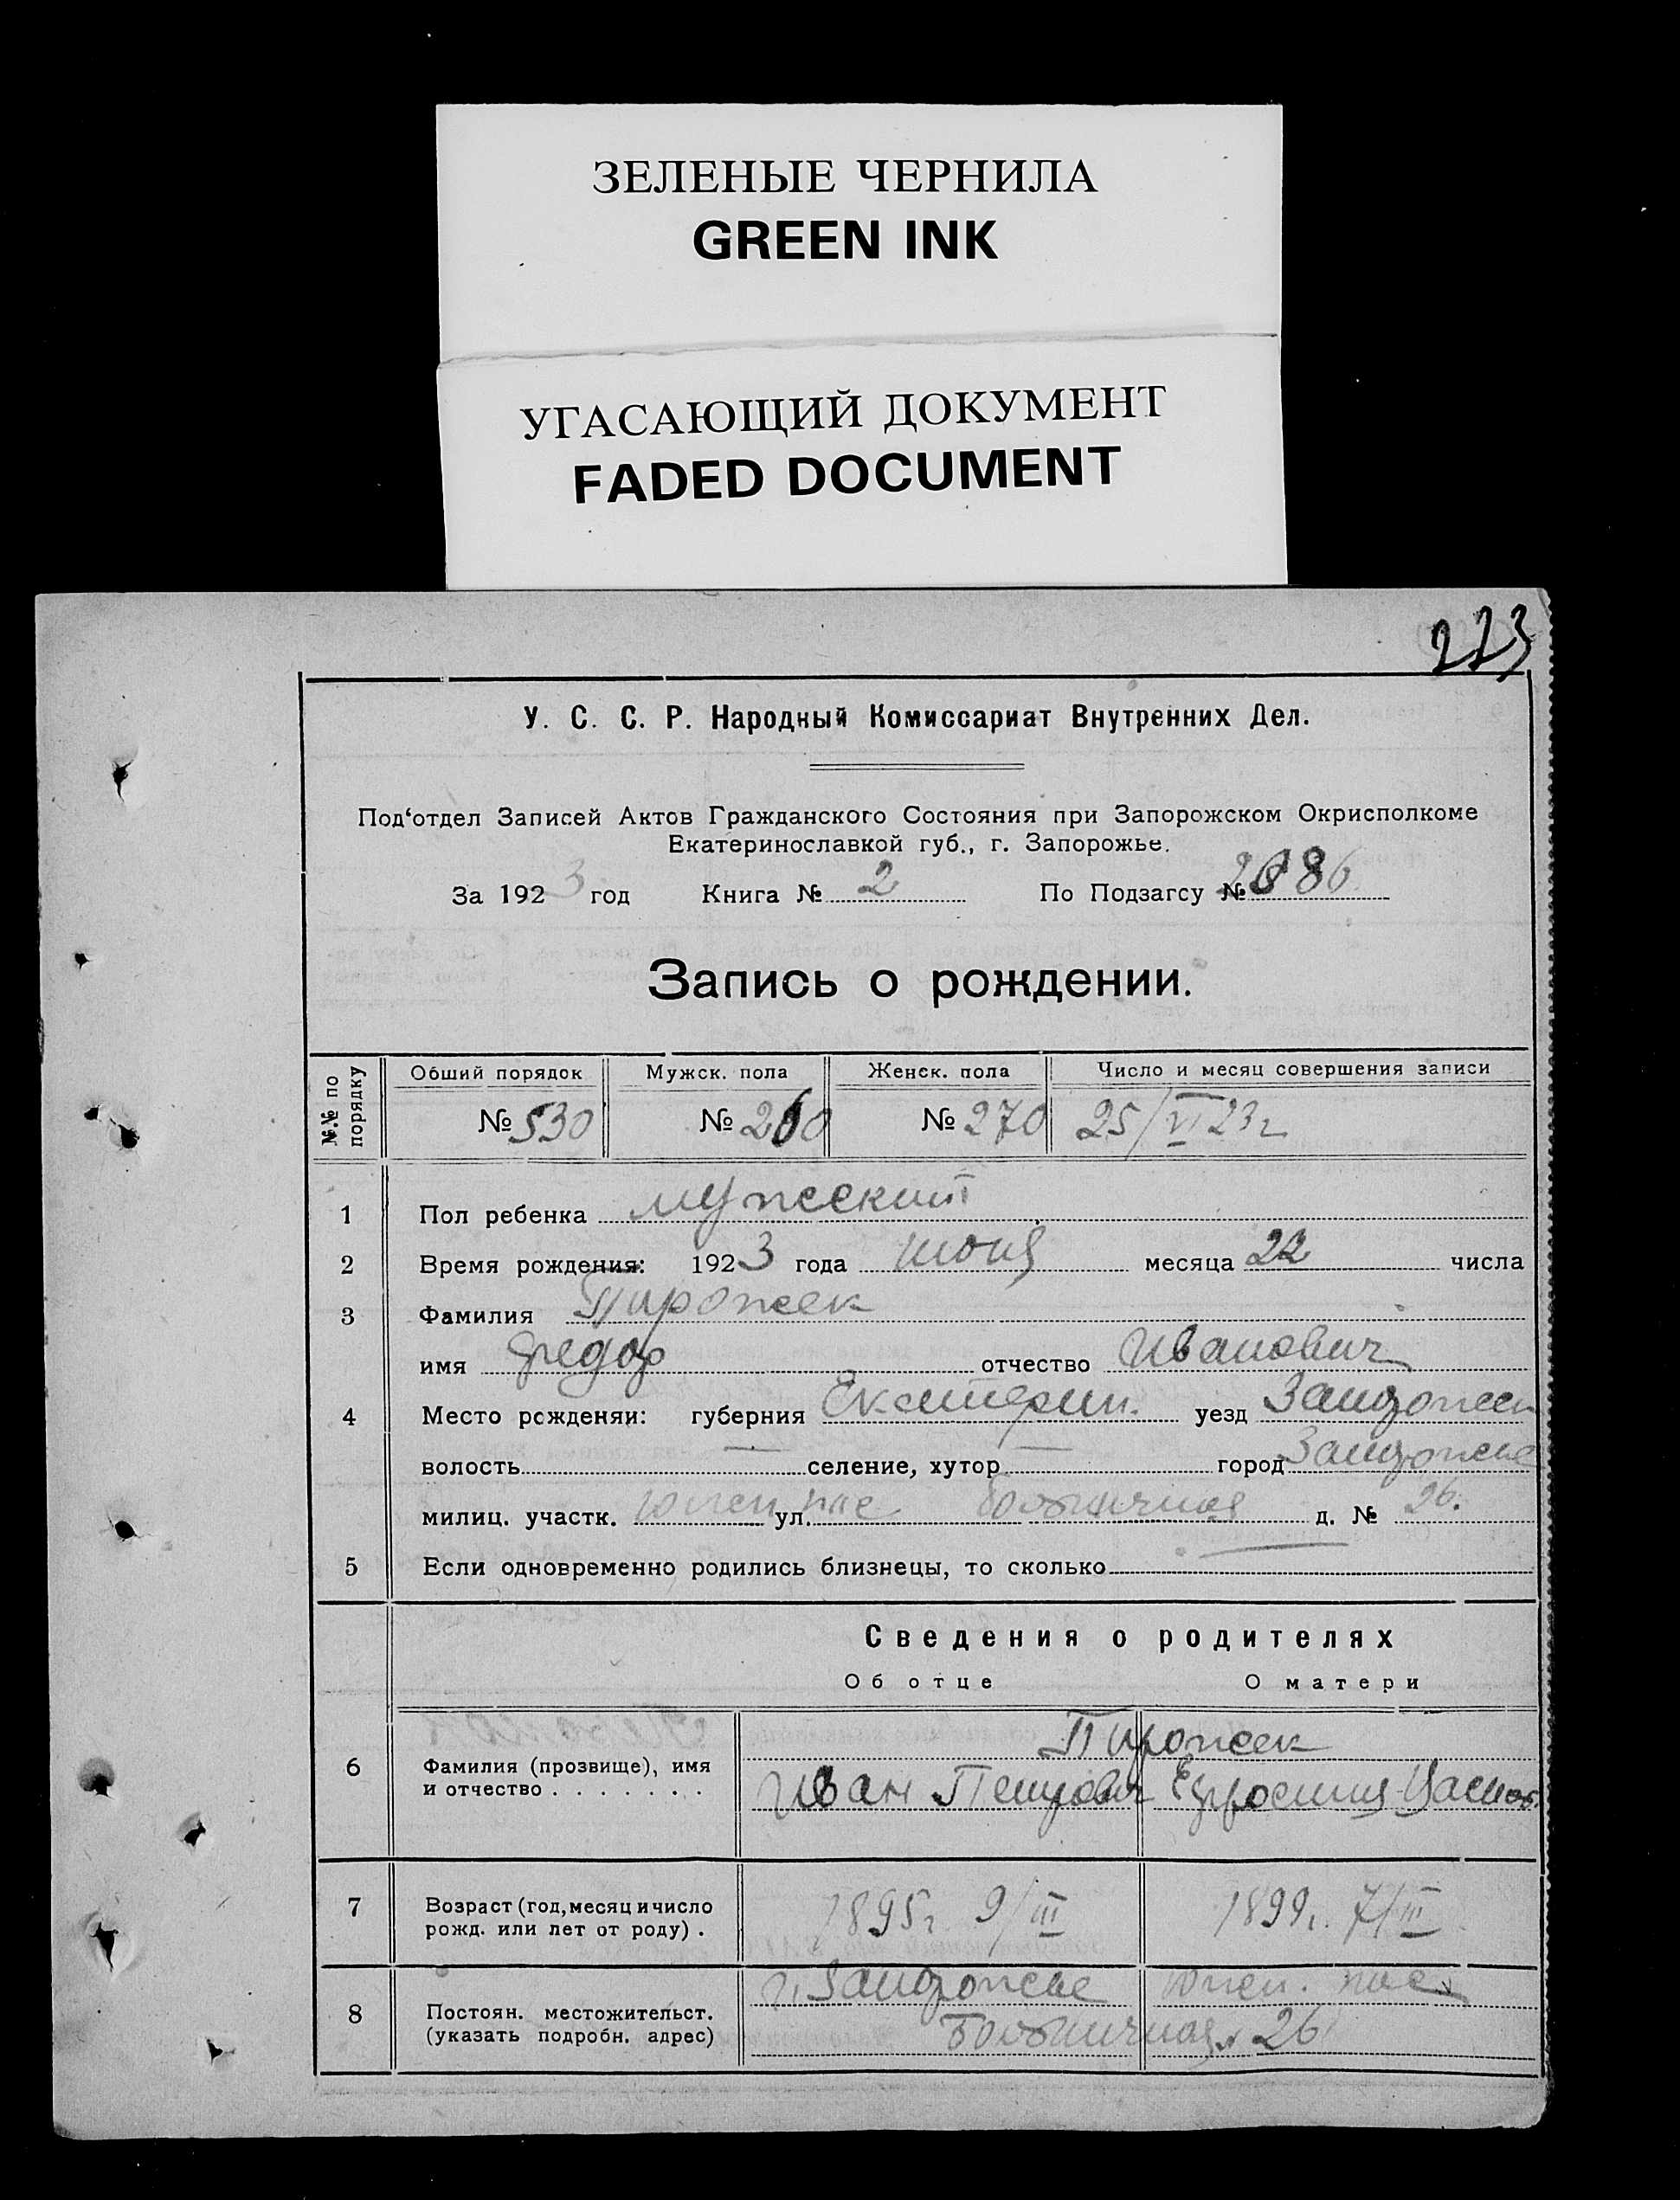 ЗЕЛЕНЫЕ ЧЕРНИЛА
GREEN INK
УГАСАЮЩИЙ ДОКУМЕНТ
FADED DOCUMENT
223
У. С. С. Р. Народный Комиссариат Внутренних Дел.
Под‘отдел Записей Актов Гражданского Состояния при Запорожском Окрисполкоме
Екатеринославкой губ., г. Запорожье.
За 1923 год Книга № 2 По Подзагсу №
Запись о рождении.
№№ по порядку Обший порядок Мужск. пола Женск. пола Число и месяц совершения записи
№ 530 № 260 № 270 25/VI 23 г
1 Пол ребенка мужеский
2 Время рождения: 1923 года июня месяца 22 числа
3 Фамилия Пирожек
имя Федор отчество Иванович
4 Место рожденяи: губерния Екатерин. уезд Запорожск
волость — селение, хутор — город Запорожье
милиц. участк. Южн. пос ул. д. № 26.
5 Если одновременно родились близнецы, то сколько
Сведения о родителях
Об отце О матери
Пирожек
6 Фамилия (прозвище), имя
и отчество . . . . . . . Иван Петрович Ефросиния
7 Возраст (год, месяц и число
рожд. или лет от роду) . 1895 г. 9/III 1899 г. 7/III
г. Запорожье Южн. пос
8 Постоян. местожительст.
(указать подробн. адрес) 26